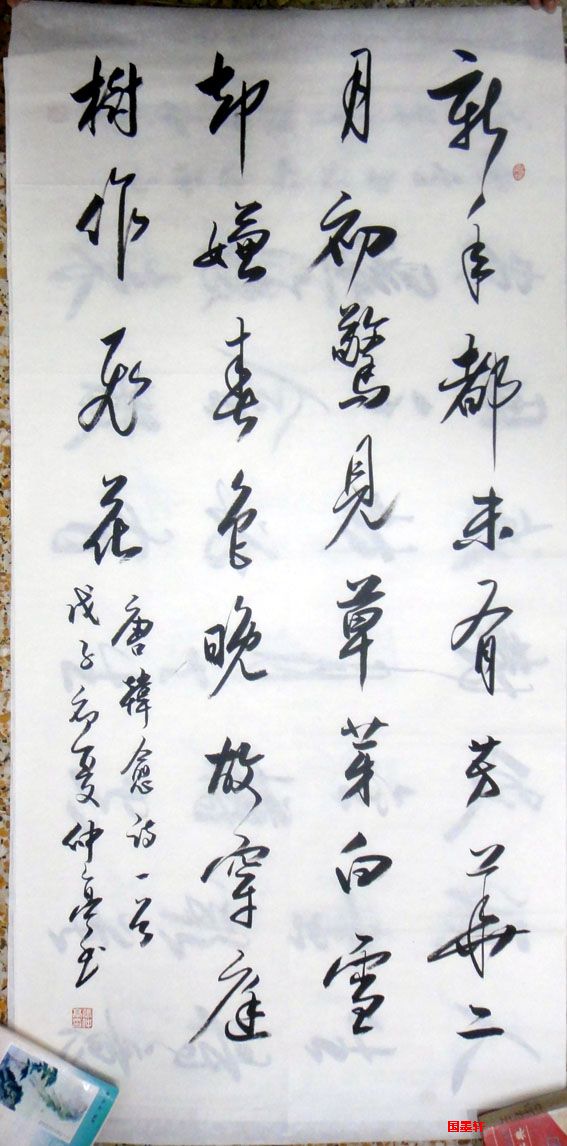 新年都未有芳華二
月初驚見草芽白雪
却嫌春色晚故穿庭
樹作飛花
唐韓愈詩一首
戊子初夏仲亭书
国墨轩